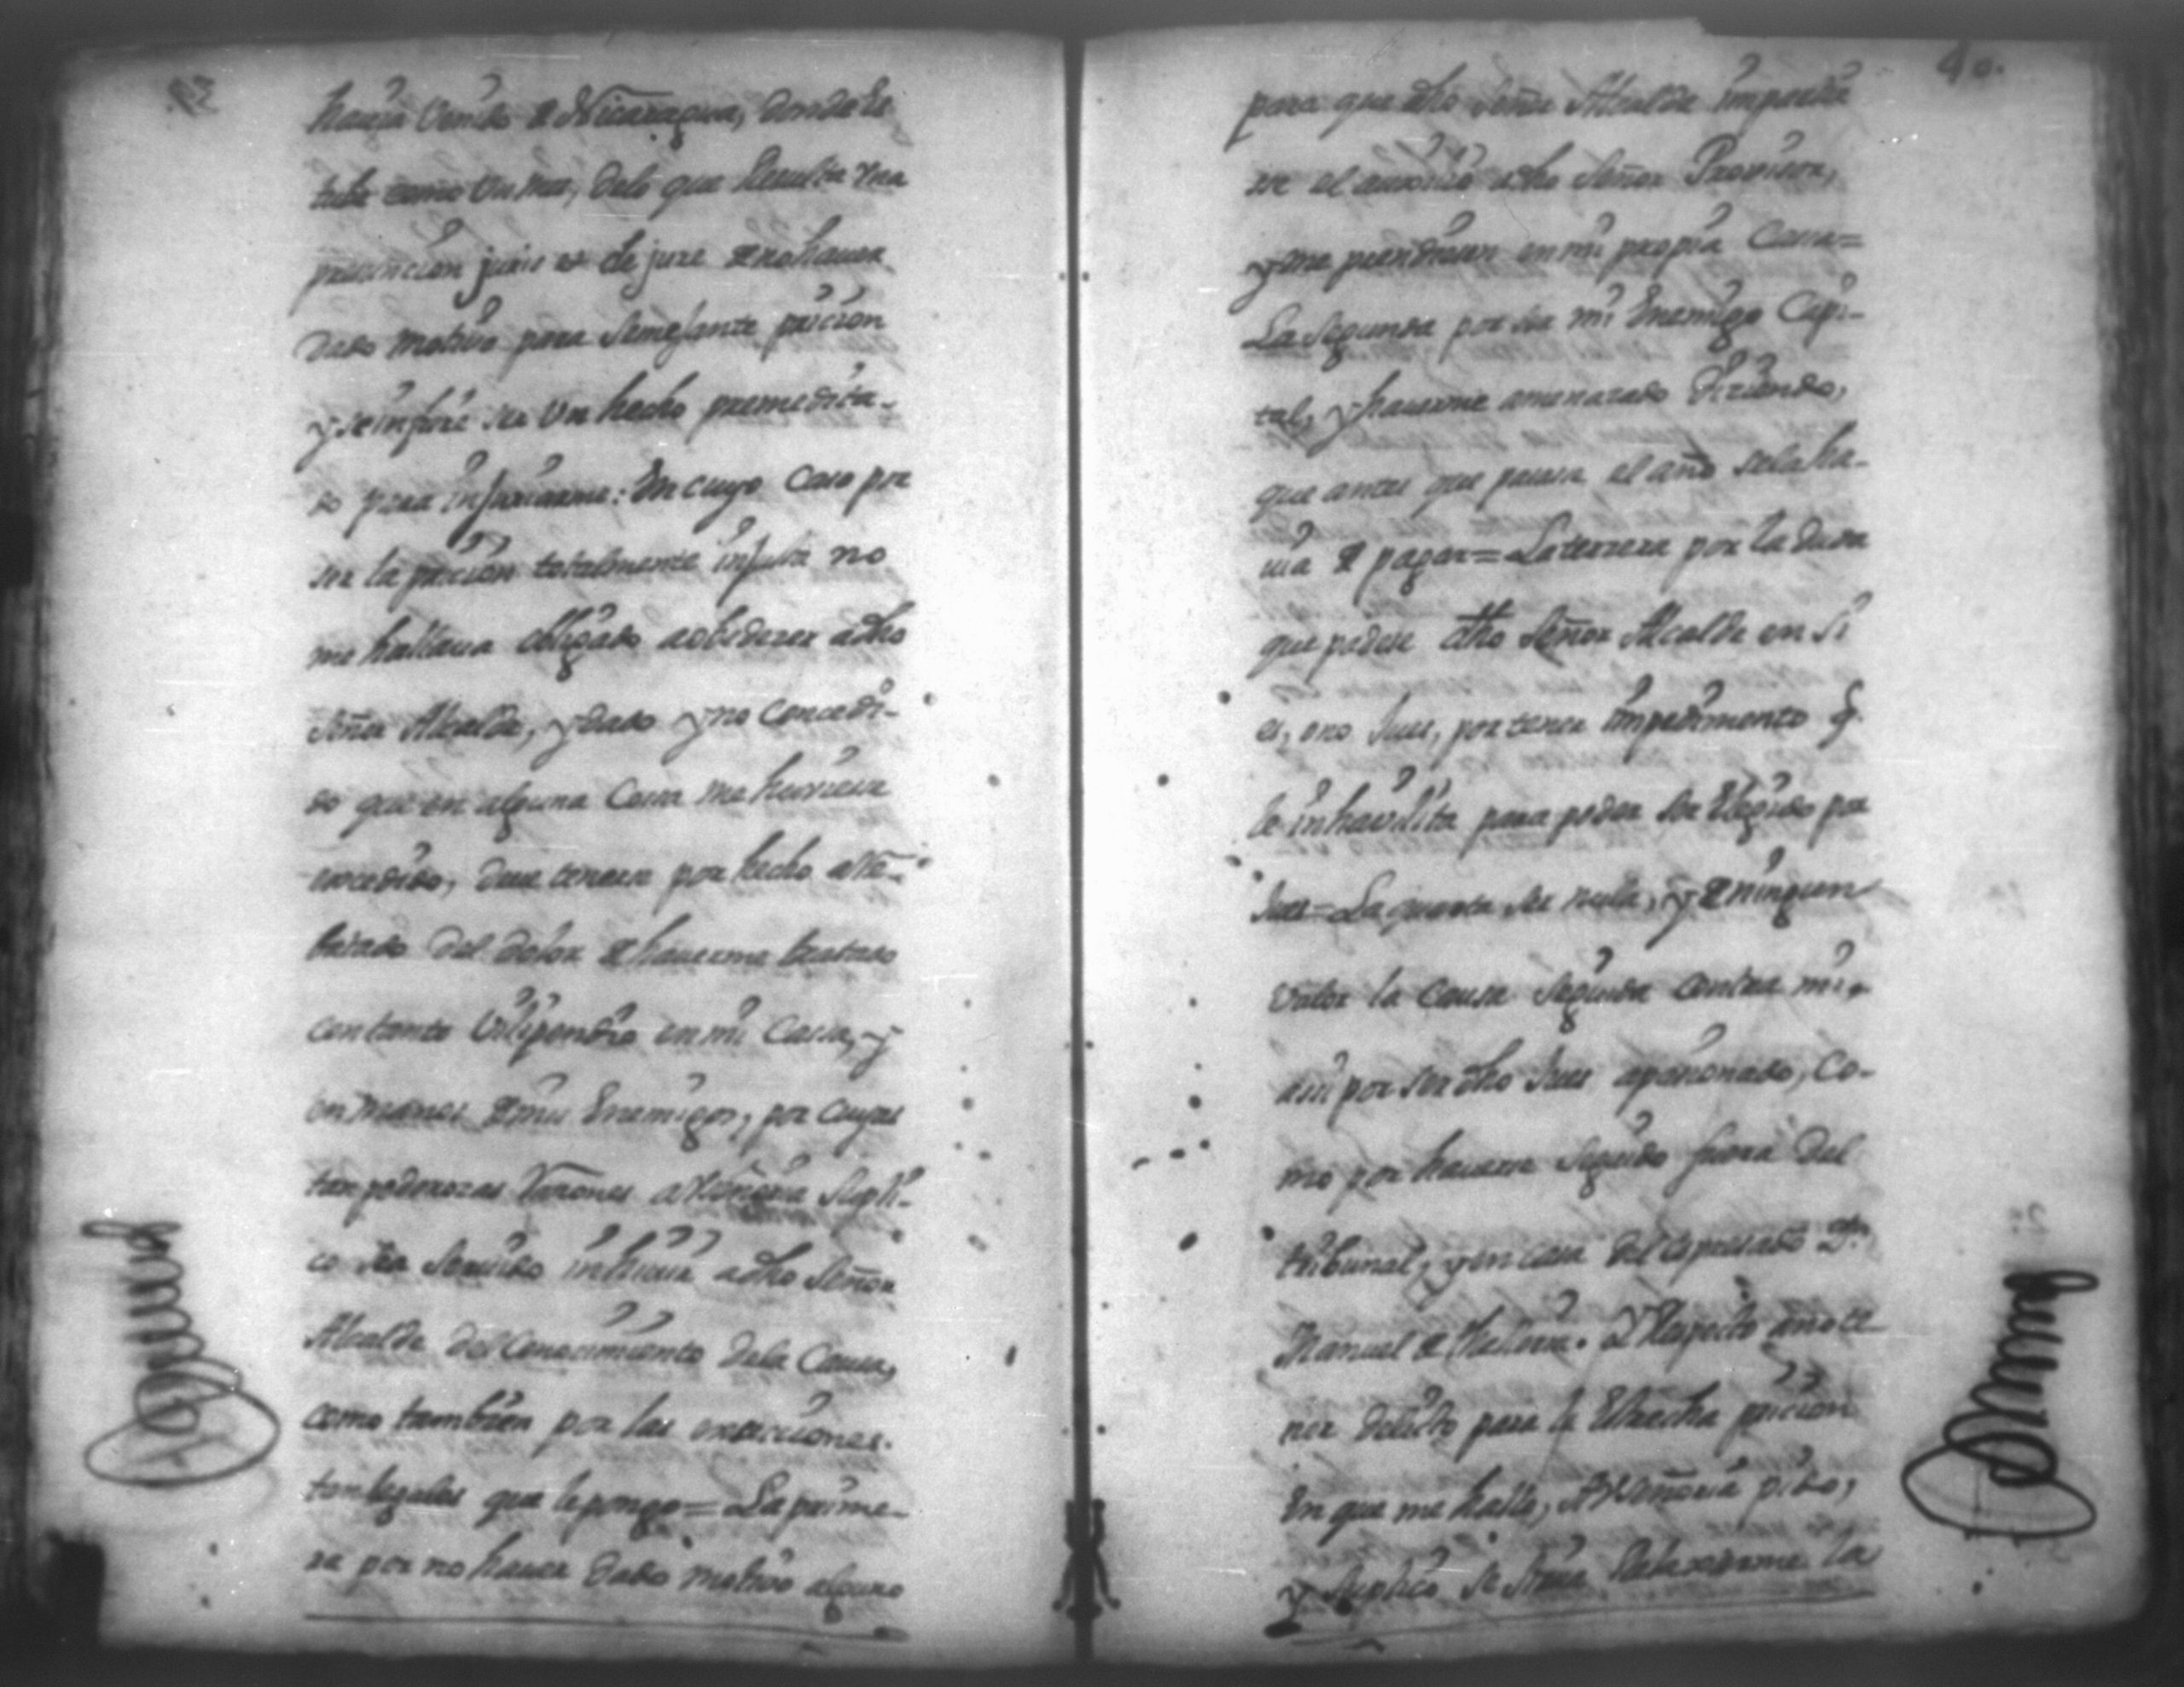 hauia Venido de Nicaragua, donde es
tube como Un mes, delo que Resulta Una
presuncion juris et de jure de no hauer
dado motivo para Semejante pricion
y se infiere ser Un hecho premedita-
do para injuriarme: En cuyo Caso por
ser la pricion totalmente injusta no
me hallaua obligado a obedezer a dho
Señor Alcalde, y dado y no Concedi-
do que en alguna Cosa me huviera
excedido, deue tenerse por hecho
del dolor de hauerme tratado
con tanto Vilipendio en mi Cassa, y
en manos de mis Enemigos, por cuyas
tan poderozas razones a Vseñoria Supli-
co sea Seruido inhiuir a dho Señor
Alcalde del Conocimiento dela Causa,
como tambien por las exsecciones
tan legales que le pongo = La prime-
ra por no hauer dado motivo alguno
40.
para que dho Señor Alcalde impartie
se el auxilio a dho Señor Provisor,
y me prendiesen en mi propia Cassa =
La Segunda por ser mi Enemigo Capi-
tal, y hauerme amenazado diziendo,
que antes que pasase el año sela ha-
uia de pagar = La terzera por la duda
que padese dho Señor Alcalde en Si
es, o no Jues, por tener impedimento q.
le inhavilita para poder ser Elegido por
Jues = La quarta ser nula, y de ningun
Valor la Causa Seguida contra mi,
assi por ser dho Jues apasionado, Co-
mo por hauerse Seguido fuera del
tribunal, y en casa del expresado Dn.
Manuel de . Y Respecto a no te
ner delicto para la Estrecha pricion
En que me hallo, A Vseñoria pido,
y Suplico Se Sirua Relaxarme la